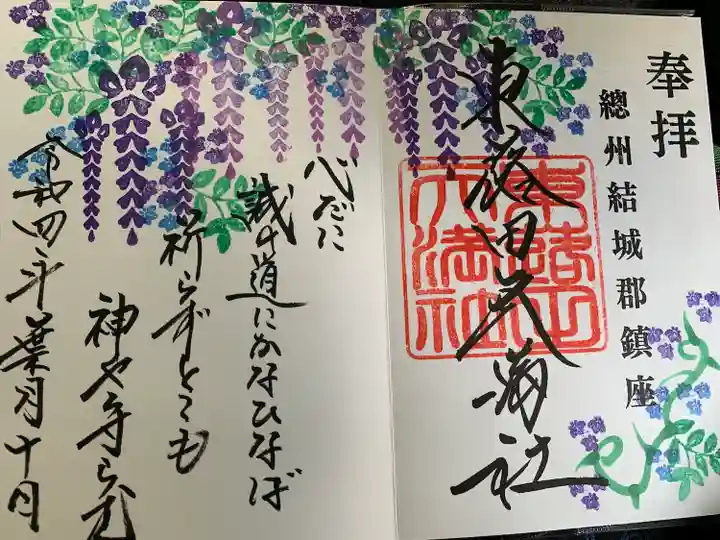 奉拝
總州結城郡鎮座
東蕗田天満社
東蕗田
天満社
心だに
誠の道にかなひなば
祈らずとても
神や守らむ
令和四年葉月十日